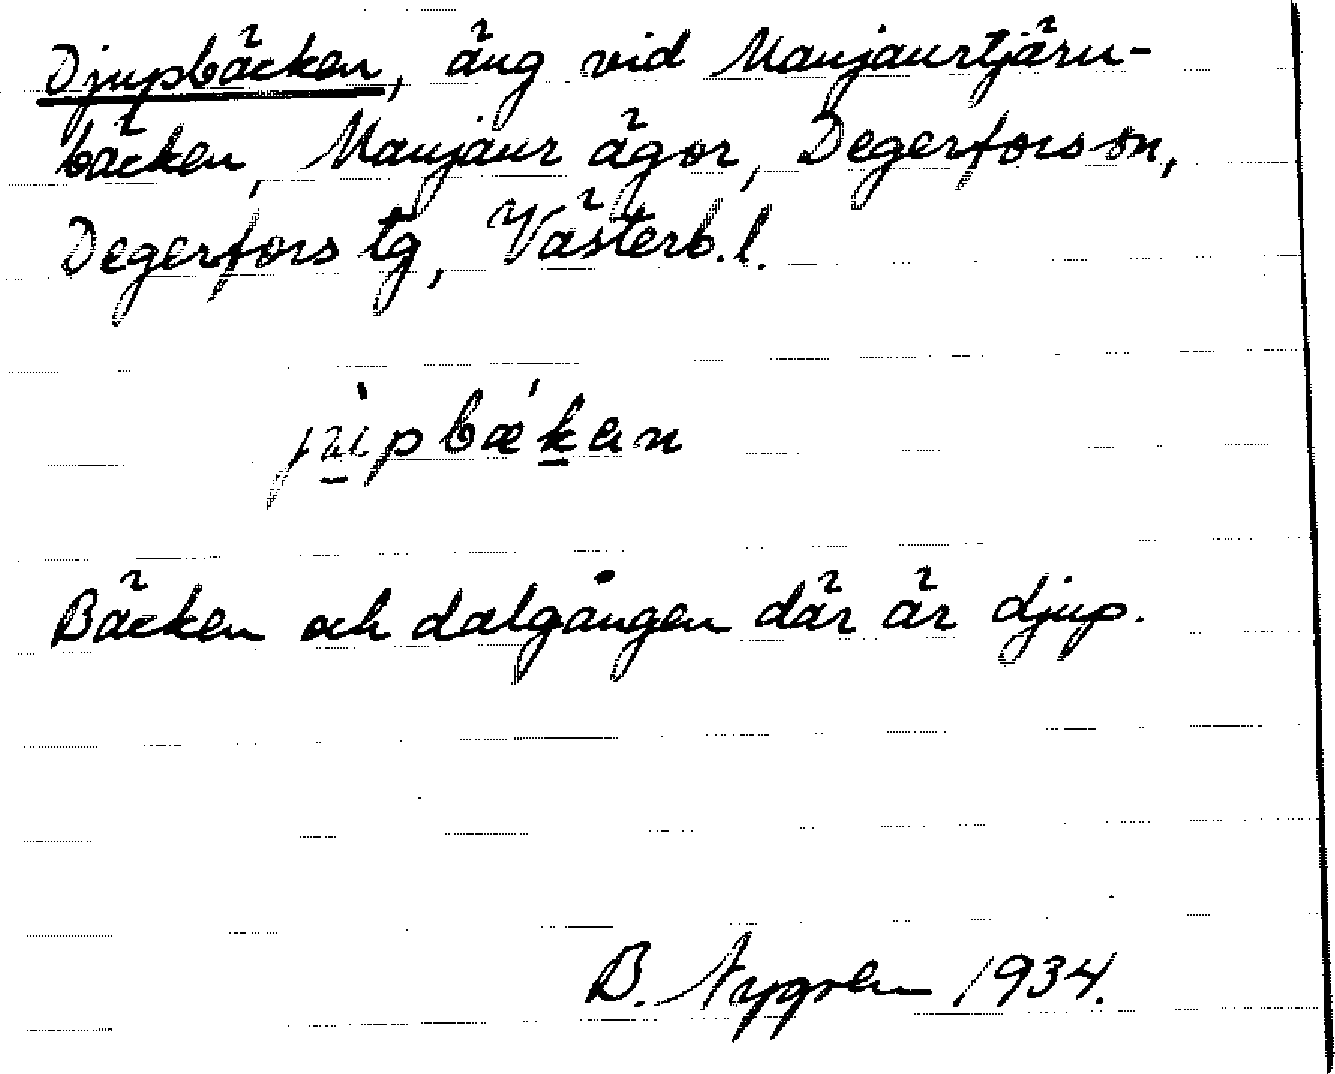 Djupbäcken, äng vid Manjaurtjärn-
bäcken, Manjaur ägor, Degerfors sn,
Degerfors tg, Västerb. l.
Bäcken och dalgången där är djup.
B. Nygren 1934.